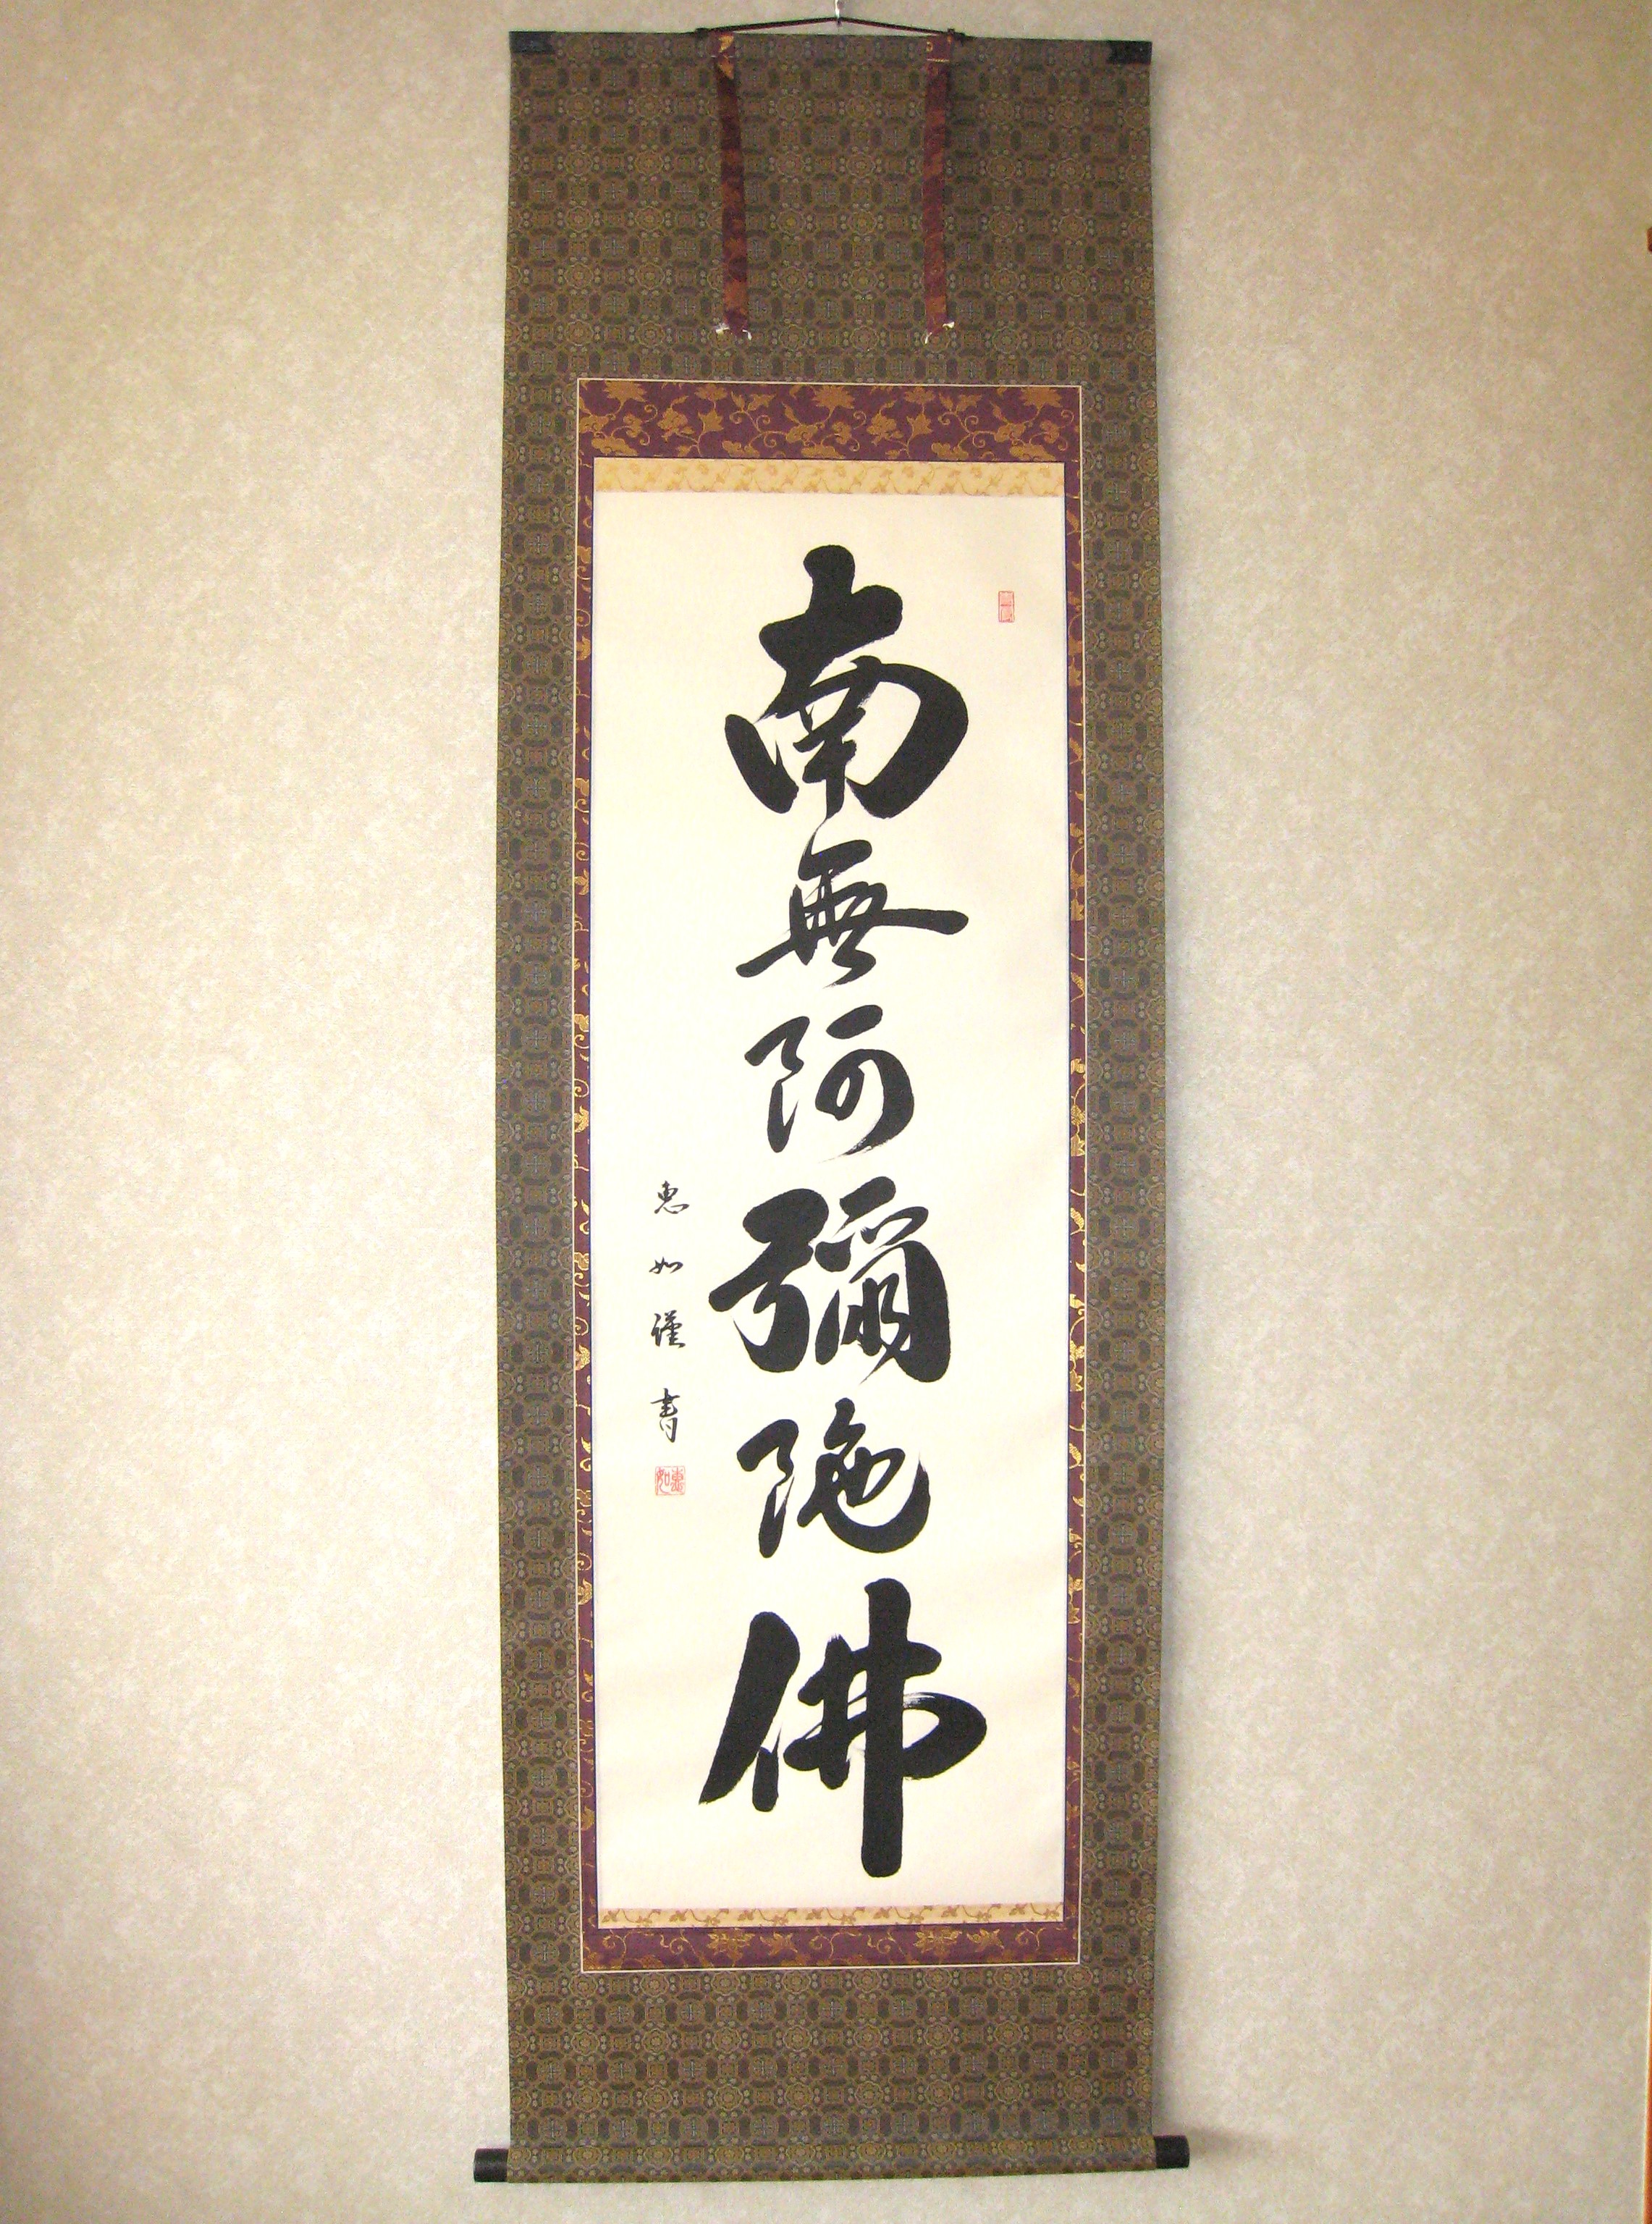 南無阿彌陀佛
恵如謹書
恵如